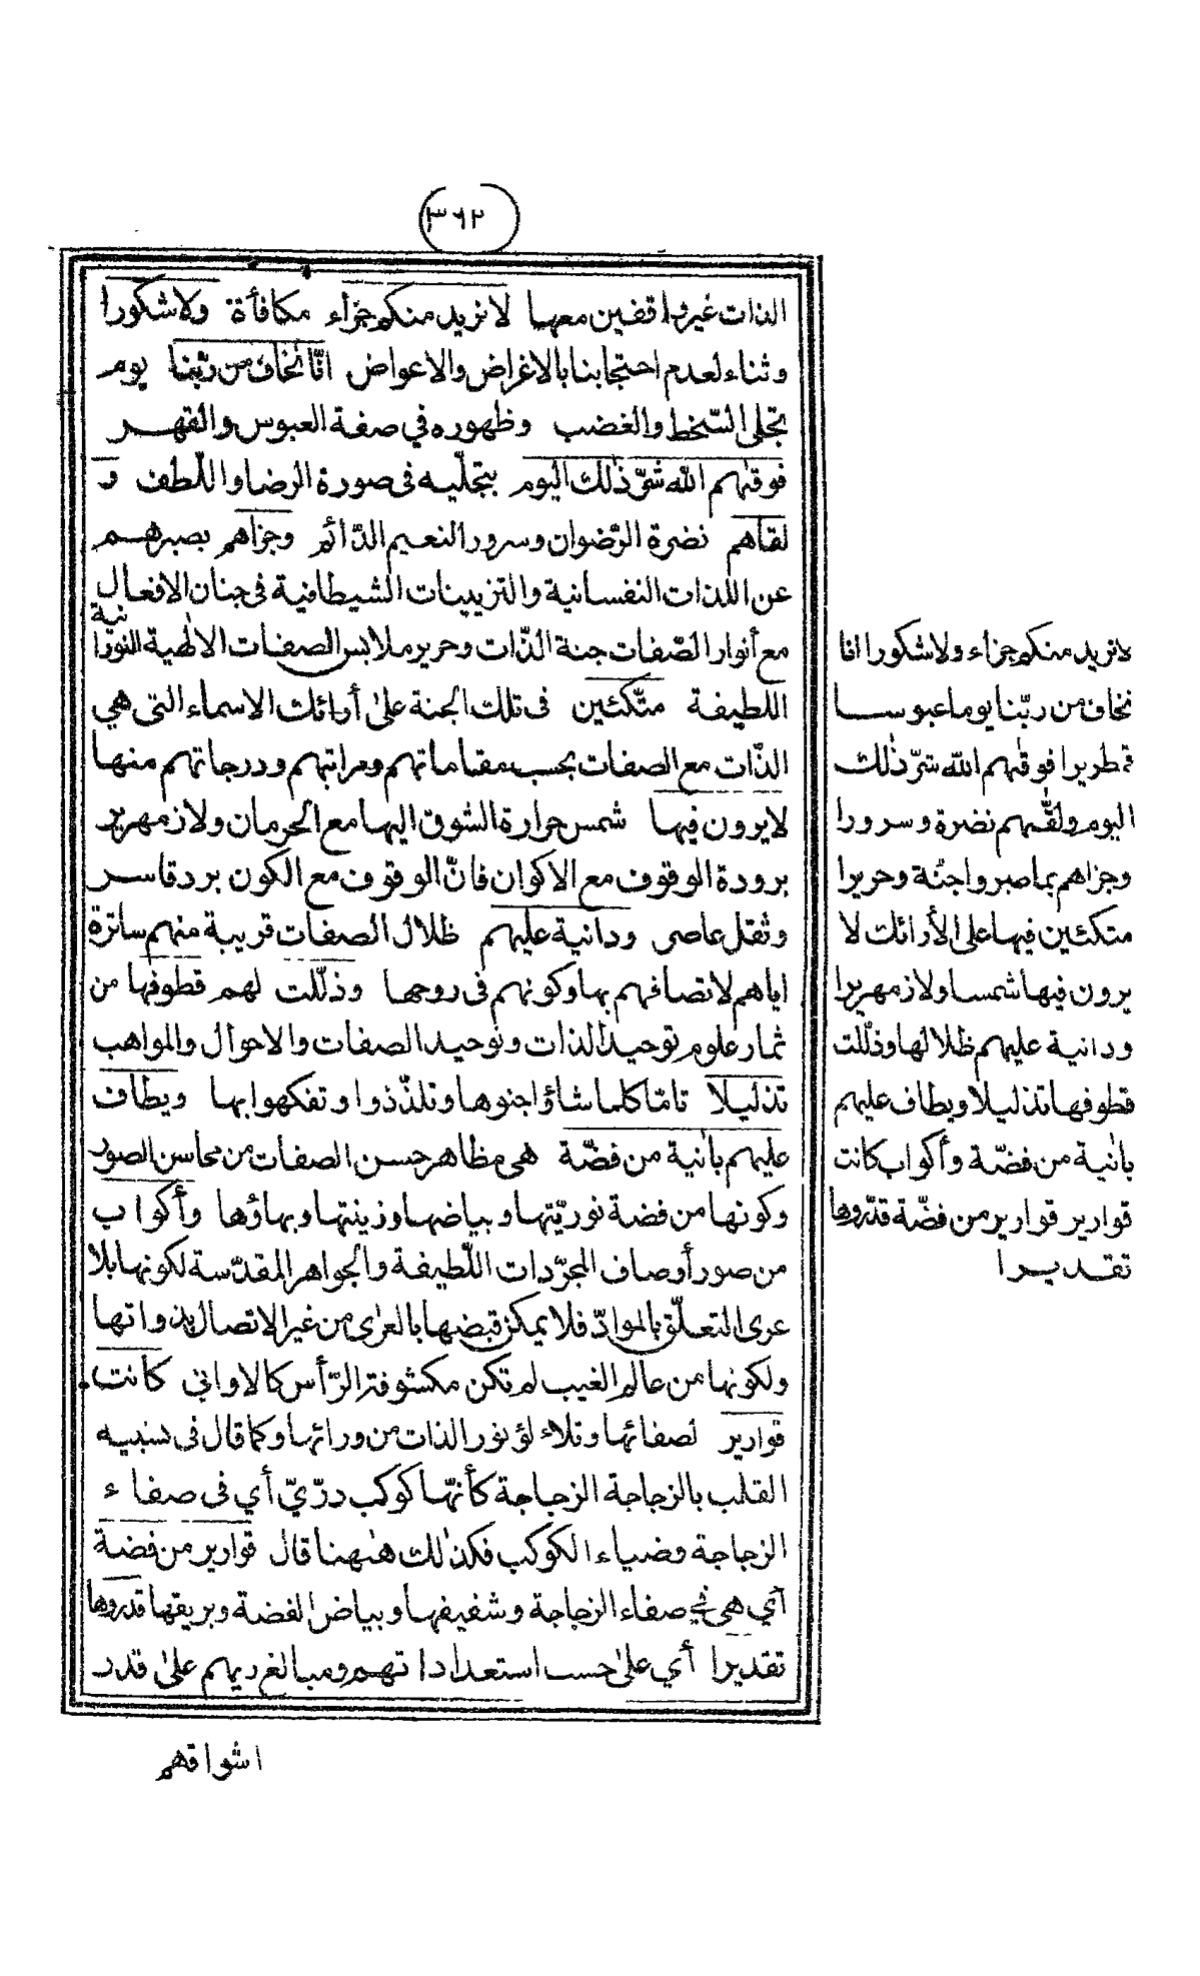 ٣٦٢
الذات غير واقفين معها لا نريد منكم جزاء مكافأة ولا شكورا
وثناء لعدم احتجابنا بالاغراض والاعواض انّا نخاف من ربّنا يوم
تجلى السّخط والغضب وظهوره في صفة العبوس والقهر
فوقٰهم الله شرّ ذٰلك اليوم بتجلّيه فى صورة الرضا واللّطف و
لقاهم نضرة الرّضوان وسرور النعيم الدّائم وجزاهم بصبرهم
عن اللذات النفسانية والتزيينات الشيطانية فى جنان الافعال
مع أنوار الصّفات جنة الذّات وحرير ملابس الصفات الالٰهية النورانية
اللطيفة متّكئين فى تلك الجنة علىٰ أرائك الاسماء التى هي
الذّات مع الصفات بحسب مقاماتهم ومراتبهم ودرجاتهم منها
لا يرون فيها شمس حرارة الشوق اليها مع الحرمان ولا زمهرير
برودة الوقوف مع الاكوان فانّ الوقوف مع الكون برد قاسر
وثقل عاصر ودانية عليهم ظلال الصفات قريبة منهم ساترة
اياهم لاتصافهم بها وكونهم فى روحها وذلّلت لهم قطوفها من
ثمار علوم توحيد الذات وتوحيد الصفات والاحوال والمواهب
تذليلا تامّا كلما شاؤا جنوها وتلذّذوا وتفكهوا بها ويطاف
عليهم بآنية من فضّة هى مظاهر حسن الصفات من محاسن الصور
وكونها من فضة نوريّتها وبياضها وزينتها وبهاؤها وأكواب
من صور أوصاف المجرّدات اللّطيفة والجواهر المقدّسة لكونها بلا
عرى التعلّق بالموادّ فلا يمكن قبضها بالعرى من غير الاتصال بذواتها
ولكونها من عالم الغيب لم تكن مكشوفة الرّأس كالاوانى كانت
قوارير لصفائها وتلاءلؤ نور الذات من ورائها وكما قال فى تشبيه
القلب بالزجاجة الزجاجة كأنّها كوكب درّيّ أي فى صفاء
الزجاجة وضياء الكوكب فكذٰلك هٰهنا قال قوارير من فضة
أي هى في صفاء الزجاجة وشفيفها وبياض الفضة وبريقها قدروها
تقديرا أي علىٰ حسب استعداداتهم ومبالغ ريهم علىٰ قدر
اشواقهم
لا نريد منكم جزاء ولا شكورا انا
نخاف من ربّنا يوما عبوسا
قمطريرا فوقٰهم الله شرّ ذٰلك
اليوم ولقّٰهم نضرة وسرورا
وجزاهم بما صبروا جنّة وحريرا
متكئين فيها على الأرائك لا
يرون فيها شمسا ولا زمهريرا
ودانية عليهم ظلالها وذلّلت
قطوفها تذليلا ويطاف عليهم
بآنية من فضّة وأكواب كانت
قوارير قوارير من فضّة قدّروها
تقديرا